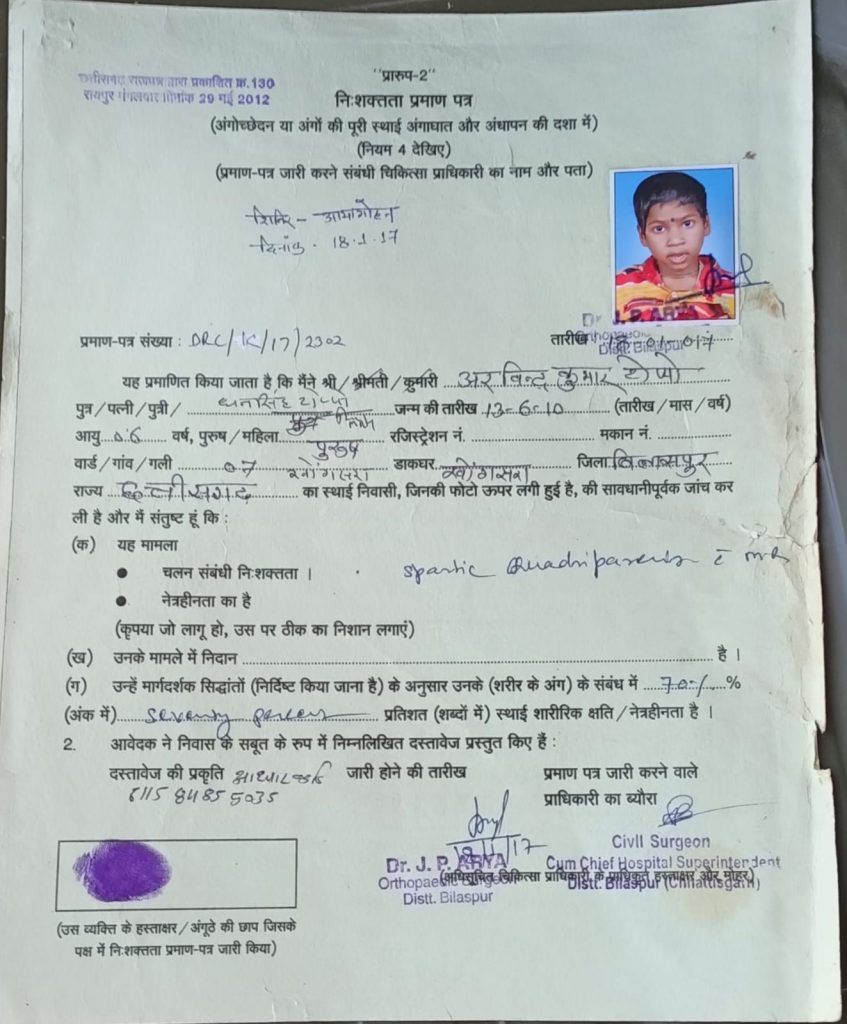 "प्रारुप-2"
छत्तीसगढ़ राजपत्र द्वारा प्रकाशित क्र.130
रायपुर मंगलवार दिनांक 29 मई 2012
निःशक्तता प्रमाण पत्र
(अंगोच्छेदन या अंगों की पूरी स्थाई अंगाघात और अंधापन की दशा में)
(नियम 4 देखिए)
(प्रमाण-पत्र जारी करने संबंधी चिकित्सा प्राधिकारी का नाम और पता)
शिविर - आमागोहन
दिनांक - 18.1.17
Dr. J. P. ARYA
Orthopaedic
Distt. Bilaspur
प्रमाण-पत्र संख्या : DRC/K/17/2302 तारीख
यह प्रमाणित किया जाता है कि मैंने श्री / श्रीमती / कुमारी अरविन्द कुमार टोप्पो
पुत्र / पत्नी / पुत्री / धनसिंह टोप्पो जन्म की तारीख 13-6-10 (तारीख / मास / वर्ष)
आयु 06 वर्ष, पुरुष / महिला पुरुष रजिस्ट्रेशन नं. मकान नं.
वार्ड / गांव / गली 07 खोंगसरा डाकघर खोंगसरा जिला बिलासपुर
राज्य छत्तीसगढ़ का स्थाई निवासी, जिनकी फोटो ऊपर लगी हुई है, की सावधानीपूर्वक जांच कर
ली है और मैं संतुष्ट हूं कि :
(क) यह मामला
● चलन संबंधी निःशक्तता । Spastic Quadriparesis c MR
● नेत्रहीनता का है
(कृपया जो लागू हो, उस पर ठीक का निशान लगाएं)
(ख) उनके मामले में निदान है ।
(ग) उन्हें मार्गदर्शक सिद्धांतों (निर्दिष्ट किया जाना है) के अनुसार उनके (शरीर के अंग) के संबंध में 70% %
(अंक में) seventy percent प्रतिशत (शब्दों में) स्थाई शारीरिक क्षति / नेत्रहीनता है ।
2. आवेदक ने निवास के सबूत के रुप में निम्नलिखित दस्तावेज प्रस्तुत किए हैं :
दस्तावेज की प्रकृति आधार कार्ड जारी होने की तारीख प्रमाण पत्र जारी करने वाले
8485 5035 प्राधिकारी का ब्यौरा
Dr. J. P. ARYA
Orthopaedic Surgeon
Distt. Bilaspur
Civil Surgeon
Cum Chief Hospital Superintendent
Distt. Bilaspur (Chhattisgarh)
(अधिसूचित चिकित्सा प्राधिकारी के प्राधिकृत हस्ताक्षर और मोहर)
(उस व्यक्ति के हस्ताक्षर / अंगूठे की छाप जिसके
पक्ष में निःशक्तता प्रमाण-पत्र जारी किया)